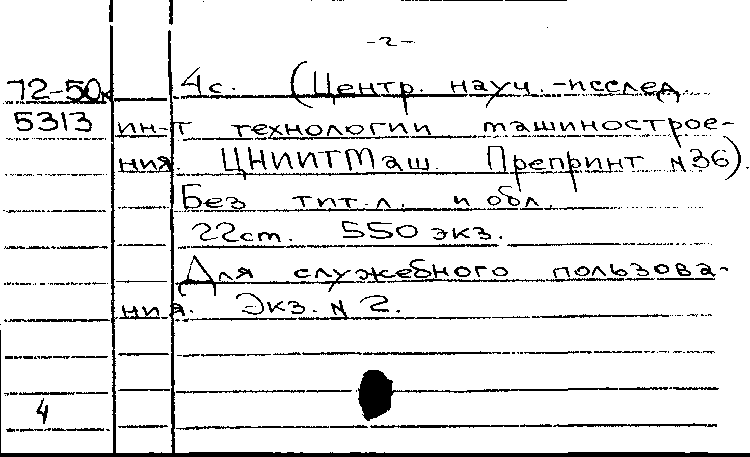 -2-
72-50к 4с. (Центр. науч.-исслед.
5313 ин-т технологии машинострое-
ния. ЦНИИТМаш. Препринт №36).
Без тит.л. и обл.
22см. 550 экз.
Для служебного пользова-
ния. Экз. № 2.
4